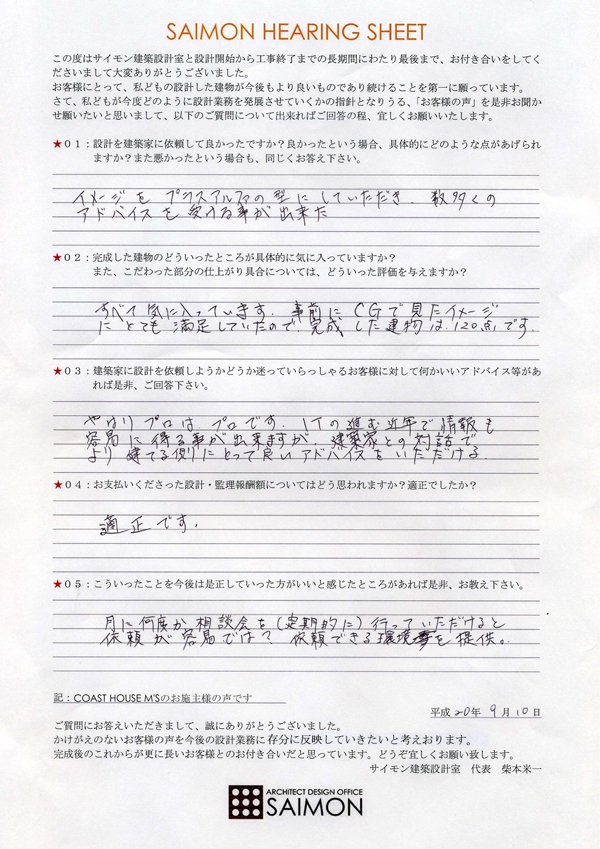 SAIMON HEARING SHEET
この度はサイモン建築設計室と設計開始から工事終了までの長期間にわたり最後まで、お付き合いをしてく
ださいまして大変ありがとうございました。
お客様にとって、私どもの設計した建物が今後もより良いものであり続けることを第一に願っています。
さて、私どもが今度どのように設計業務を発展させていくかの指針となりうる、「お客様の声」を是非お聞か
せ願いたいと思いまして、以下のご質問について出来ればご回答の程、宜しくお願いいたします。
★０１：設計を建築家に依頼して良かったですか？良かったという場合、具体的にどのような点があげられ
ますか？また悪かったという場合も、同じくお答え下さい。
イメージを プラスアルファの型にしていただき、数多くの
アドバイスを受ける事が出来た
★０２：完成した建物のどういったところが具体的に気に入っていますか？
また、こだわった部分の仕上がり具合については、どういった評価を与えますか？
すべて気に入っています。事前にCGで見たイメージ
にとても満足していたので、完成した建物は、120点です。
★０３：建築家に設計を依頼しようかどうか迷っていらっしゃるお客様に対して何かいいアドバイス等があ
れば是非、ご回答下さい。
やはりプロは、プロです。ITの進む近年で情報も
容易に得る事が出来ますが、建築家との対話で
より建てる側にとって良いアドバイスをいただける。
★０４：お支払いくださった設計・監理報酬額についてはどう思われますか？適正でしたか？
適正です。
★０５：こういったことを今後は是正していった方がいいと感じたところがあれば是非、お教え下さい。
月に何度か相談会を(定期的に)行っていただけると
依頼が容易では？ 依頼できる環境を提供。
記：COAST HOUSE M'Sのお施主様の声です
平成20年 9月10日
ご質問にお答えいただきまして、誠にありがとうございました。
かけがえのないお客様の声を今後の設計業務に存分に反映していきたいと考えおります。
完成後のこれからが更に長いお客様とのお付き合いだと思っています。どうぞ宜しくお願い致します。
サイモン建築設計室 代表 柴本米一
ARCHITECT DESIGN OFFICE
SAIMON